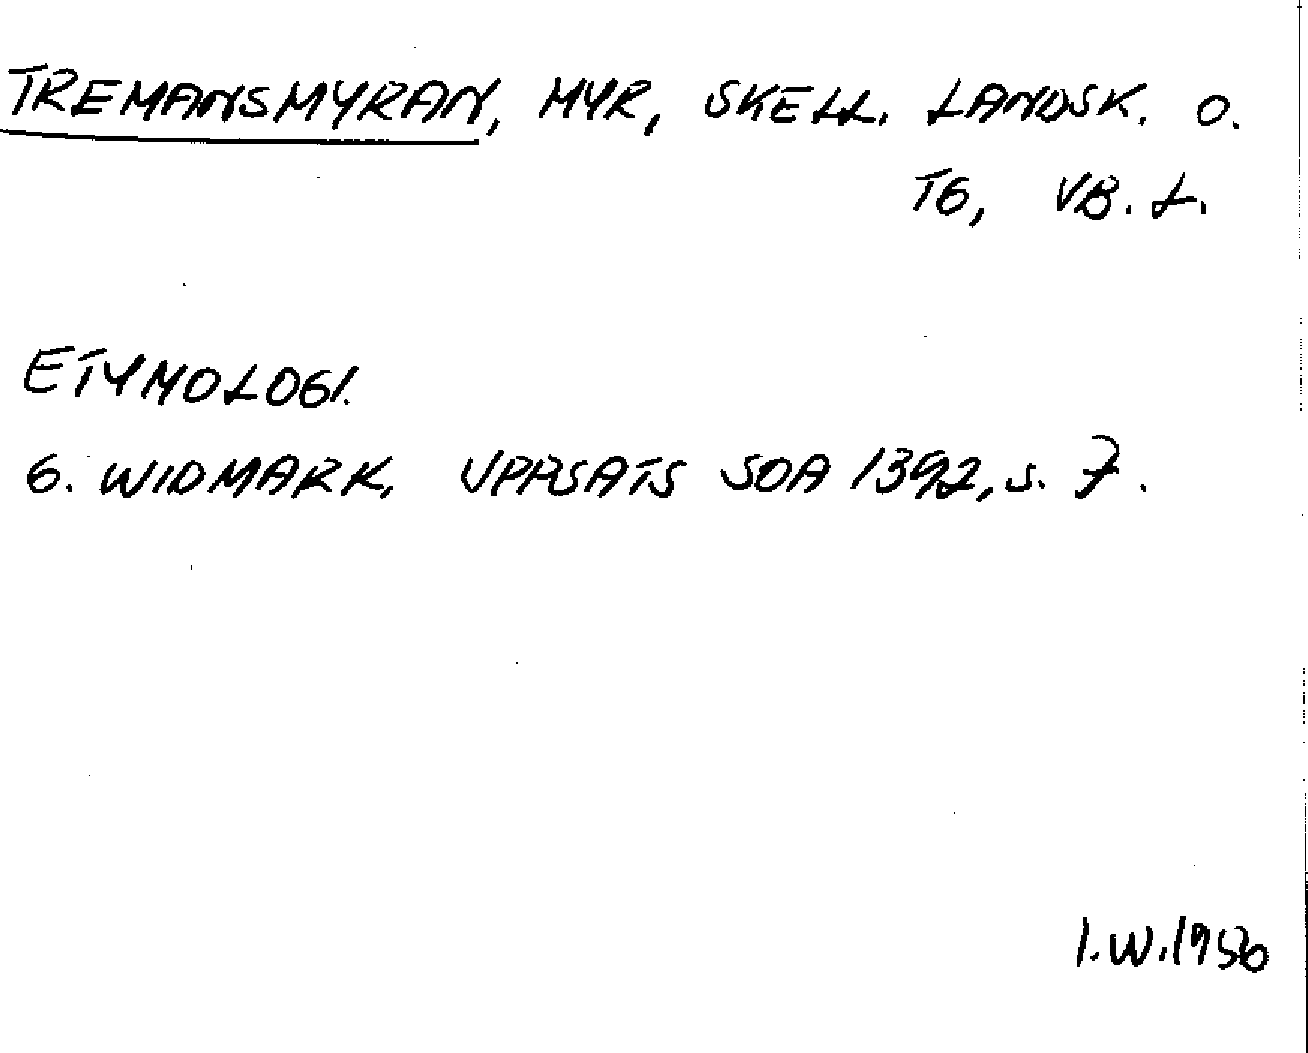 TREMANSMYRAN, MYR, SKELL. LANDSK. O.
TG, VB. L.
ETYMOLOGI.
G. WIDMARK, UPPSATS SOA 1392, s. 7.
I.W.